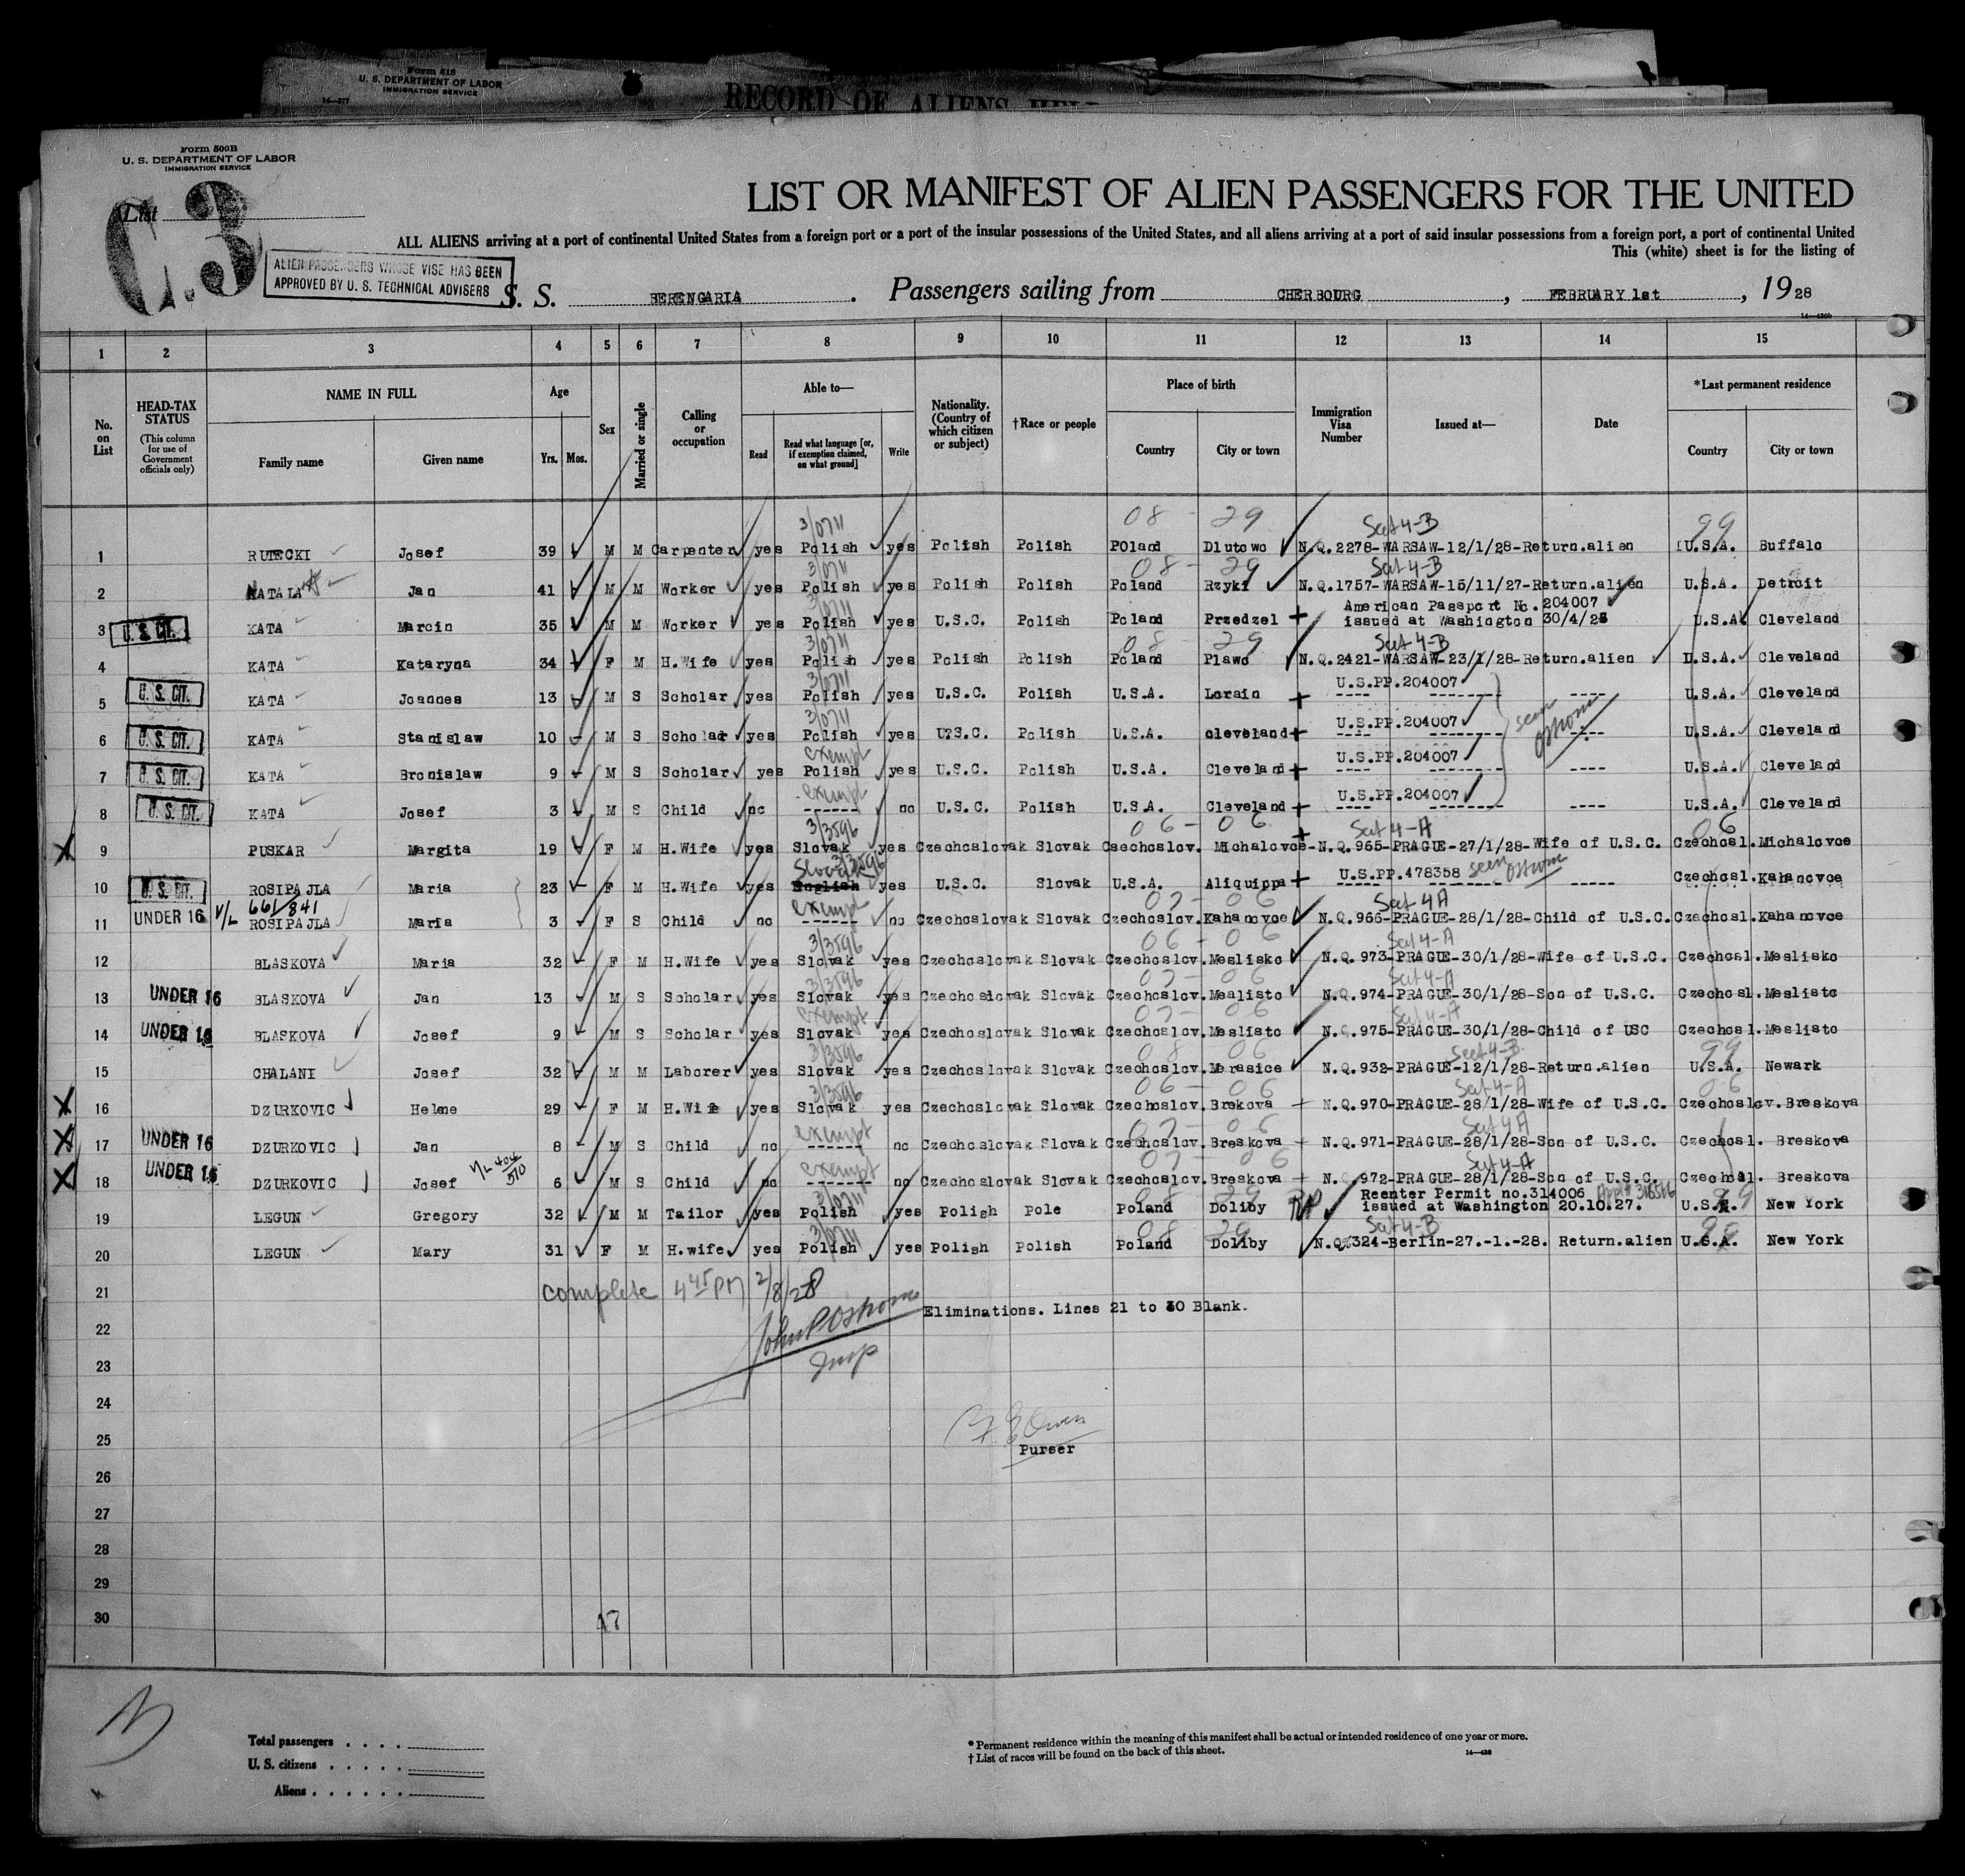 Form 518
U. S. DEPARTMENT OF LABOR
IMMIGRATION SERVICE
14—577
RECORD OF ALIENS HEL
Form 500B
U. S. DEPARTMENT OF LABOR
IMMIGRATION SERVICE
List
C.3
LIST OR MANIFEST OF ALIEN PASSENGERS FOR THE UNITED
ALL ALIENS arriving at a port of continental United States from a foreign port or a port of the insular possessions of the United States, and all aliens arriving at a port of said insular possessions from a foreign port, a port of continental United
This (white) sheet is for the listing of
ALIEN PASSENGERS WHOSE VISE HAS BEEN
APPROVED BY U. S. TECHNICAL ADVISERS
S. S. BERENGARIA. Passengers sailing from CHERBOURG, FEBRUARY 1st, 1928
14—430b
1 2 3 4 5 6 7 8 9 10 11 12 13 14 15
No. on List
HEAD-TAX STATUS
(This column for use of Government officials only)
NAME IN FULL
Family name Given name
Age
Yrs. Mos.
Sex
Married or single
Calling or occupation
Able to—
Read Read what language [or, if exemption claimed, on what ground] Write
Nationality. (Country of which citizen or subject)
†Race or people
Place of birth
Country City or town
Immigration Visa Number
Issued at—
Date
*Last permanent residence
Country City or town
3/0711 08 - 29 Sect 4-B 99
1 RUTECKI Josef 39 M M Carpenter yes Polish yes Polish Polish POland Dlutowo N.Q.2278-WARSAW-12/1/28-Return.alien U.S.A. Buffalo
3/0711 08 - 29 Sect 4-B
2 MATALA Jan 41 M M Worker yes Polish yes Polish Polish Poland Rzyki N.Q.1757-WARSAW-15/11/27-Return.alien U.S.A. Detroit
3/0711 American Passport No. 204007
3 U. S. CIT. KATA Marcin 35 M M Worker yes Polish yes U.S.C. Polish Poland Przedzel issued at Washington 30/4/25 U.S.A. Cleveland
3/0711 08 29 Sect 4-B
4 KATA Kataryna 34 F M H.Wife yes Polish yes Polish Polish Poland Plawo N.Q.2421-WARSAW-23/1/28-Return.alien U.S.A. Cleveland
3/0711 U.S.PP.204007
5 U. S. CIT. KATA Joannes 13 M S Scholar yes Polish yes U.S.C. Polish U.S.A. Lorain ---- -------- ---- U.S.A. Cleveland
3/0711 U.S.PP.204007 seen Ostrom
6 U. S. CIT. KATA Stanislaw 10 M S Scholar yes Polish yes U?S.C. Polish U.S.A. cleveland ---- -------- ---- U.S.A. Cleveland
exempt U.S.PP.204007
7 U. S. CIT. KATA Bronislaw 9 M S Scholar yes Polish yes U.S.C. Polish U.S.A. Cleveland ---- -------- ---- U.S.A. Cleveland
exempt U.S.PP.204007
8 U. S. CIT. KATA Josef 3 M S Child no ------ no U.S.C. Polish U.S.A. Cleveland ---- -------- ---- U.S.A. Cleveland
3/3596 06 - 06 Sect 4-A 06
X 9 PUSKAR Margita 19 F M H.Wife yes Slovak yes Czechoslovak Slovak Csechoslov. Michalovce-N.Q.965-PRAGUE-27/1/28-Wife of U.S.C. Czechosl.Michalovce
Slovak 3/3596 U.S.PP.478358 seen Ostrom
10 U. S. CIT. ROSIPAJLA Maria 23 F M H.Wife yes English yes U.S.C. Slovak U.S.A. Aliquippa ----- Czechosl.Kahanovce
V/L 661/841 exempt 07 - 06 Sect 4A
11 UNDER 16 ROSIPAJLA Maria 3 F S Child no ------ no Czechoslovak Slovak Czechoslov.Kahanovce N.Q.966-PRAGUE-28/1/28-Child of U.S.C.Czechosl.Kahanovce
3/3596 06 - 06 Sect 4-A
12 BLASKOVA Maria 32 F M H.Wife yes Slovak yes Czechoslovak Slovak Czechoslov.Meslisko N.Q.973-PRAGUE-30/1/28-Wife of U.S.C. Czechosl.Meslisko
3/3596 07 - 06 Sect 4-A
13 UNDER 16 BLASKOVA Jan 13 M S Scholar yes Slovak yes Czechoslovak Slovak Czechoslov.Mealisto N.Q.974-PRAGUE-30/1/28-Son of U.S.C. Czechosl.Meslisto
exempt 07 - 06 Sect 4-A
14 UNDER 16 BLASKOVA Josef 9 M S Scholar yes Slovak yes Czechoslovak Slovak Czechoslov.Meslisto N.Q.975-PRAGUE-30/1/28-Child of USC Czechosl.Meslisto
3/3596 08 06 Sect 4-B. 99
15 CHALANI Josef 32 M M Laborer yes Slovak yes Czechoslovak Slovak Czechoslov.Morasice N.Q.932-PRAGUE-12/1/28-Return.alien U.S.A. Newark
3/3596 06 - 06 Sect 4-A 06
X 16 DZURKOVIC Helene 29 F M H.Wife yes Slovak yes Czechoslovak Slovak Czechoslov.Brekova N.Q.970-PRAGUE-28/1/28-Wife of U.S.C. Czechoslov.Breskova
exempt 07 - 06 Sect 4A
X 17 UNDER 16 DZURKOVIC Jan 8 M S Child no ------ no Czechoslovak Slovak Czechoslov.Breskova N.Q.971-PRAGUE-28/1/28-Son of U.S.C. Czechosl. Breskova
V/L 404/570 exempt 07 - 06 Sect 4-A
X 18 UNDER 16 DZURKOVIC Josef 6 M S Child no ------ no Czechoslovak Slovak Czechoslov.Breskova N.Q.972-PRAGUE-28/1/28-Son of U.S.C. Czechosl. Breskova
3/0711 08 29 RP Reenter Permit no.314006 99
19 LEGUN Gregory 32 M M Tailor yes Polish yes Polish Pole Poland Doliby issued at Washington 20.10.27. U.S.A. New York
3/0711 08 29 Sect 4-B 99
20 LEGUN Mary 31 F M H.wife yes Polish yes Polish Polish Poland Doliby N.Q.324-Berlin-27.-1.-28. Return.alien U.S.A. New York
21 complete 4 45 PM 2/8/28
Eliminations. Lines 21 to 30 Blank.
22 John P Ostrom
23 Insp
24
25 Purser
26
27
28
29
30 17
Total passengers . . . .
U. S. citizens . . . . .
Aliens . . . . . .
* Permanent residence within the meaning of this manifest shall be actual or intended residence of one year or more.
† List of races will be found on the back of this sheet. 14—430